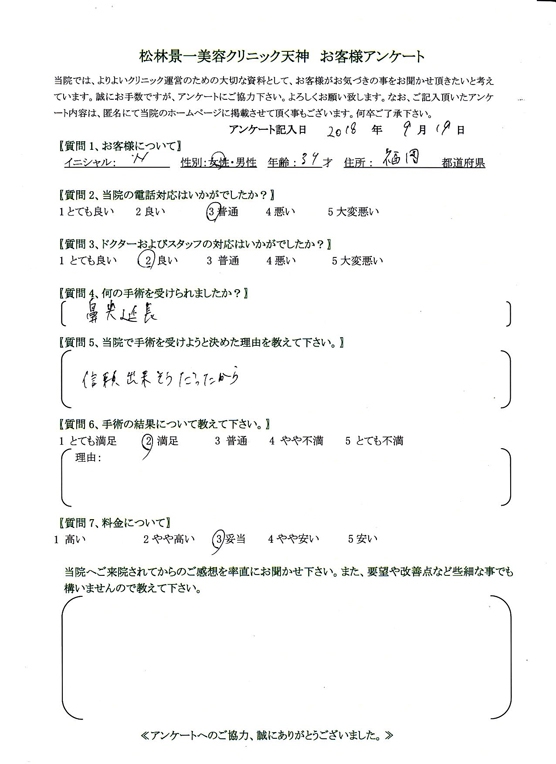 松林景一美容クリニック天神　お客様アンケート
当院では、よりよいクリニック運営のための大切な資料として、お客様がお気づきの事をお聞かせ頂きたいと考え
ています。誠にお手数ですが、アンケートにご協力下さい。よろしくお願い致します。なお、ご記入頂いたアンケ
ート内容は、匿名にて当院のホームページに掲載させて頂く事もございます。何卒ご了承下さい。
アンケート記入日　2018　年　9 月 19 日
【質問１、お客様について】
イニシャル：　性別：女性・男性　年齢：34 才　住所：　福岡　都道府県
【質問２、当院の電話対応はいかがでしたか？】
1 とても良い　2 良い　3 普通　4 悪い　5 大変悪い
【質問３、ドクターおよびスタッフの対応はいかがでしたか？】
1 とても良い　2 良い　3 普通　4 悪い　5 大変悪い
【質問４、何の手術を受けられましたか？】
鼻尖延長
【質問５、当院で手術を受けようと決めた理由を教えて下さい。】
信頼出来そうだったから
【質問６、手術の結果について教えて下さい。】
1 とても満足　2 満足　3 普通　4 やや不満　5 とても不満
理由：
【質問７、料金について】
1 高い　2 やや高い　3 妥当　4 やや安い　5 安い
当院へご来院されてからのご感想を率直にお聞かせ下さい。また、要望や改善点など些細な事でも
構いませんので教えて下さい。
≪アンケートへのご協力、誠にありがとうございました。≫